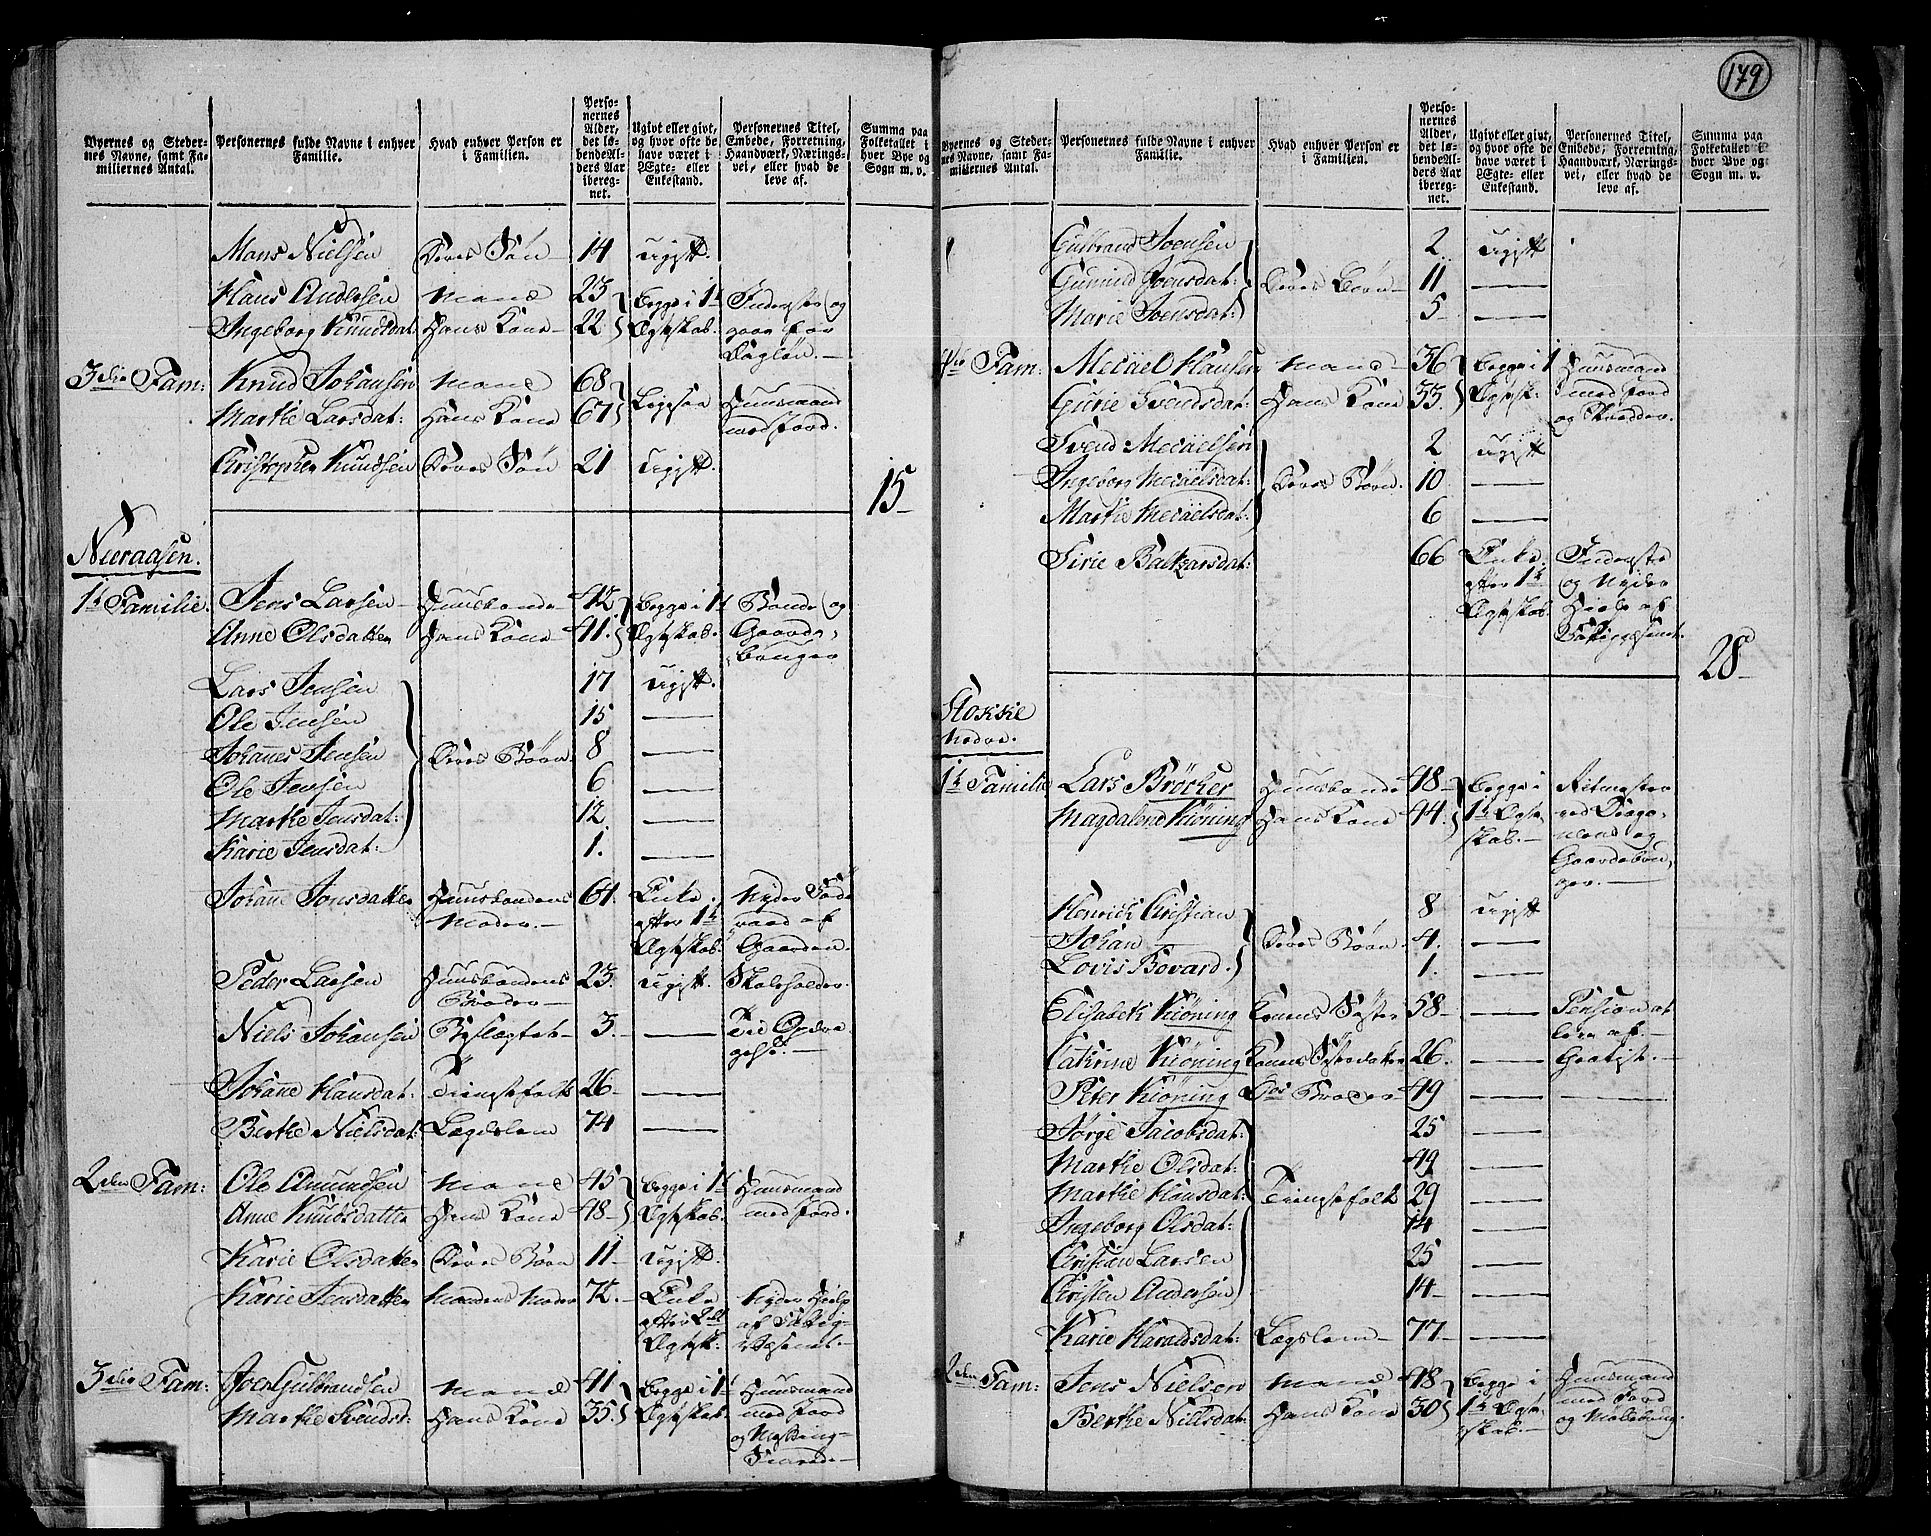 179
Byernes og Stedernes Navne, samt Familiernes Antal. | Personernes fulde Navne i enhver Familie. | Hvad enhver Person er i Familien. | Personernes Alder, det løbende Alders Aar iberegnet. | Ugivt eller givt, og hvor ofte de have været i Egte- eller Enkestand. | Personernes Titel, Embede, Forretning, Haandværk, Næringsvei, eller hvad de leve af. | Summa paa Folketallet i hver Bye og Sogn m. v.
Mons Nielsen | Deres Søn | 14 | ugift
Hans Andersen | Mand | 23 | Begge i 1t | Inderster og
Ingeborg Knudsdat: | Hans Kone | 22 | Egteskab. | gaar for Dagløn.
3die Fam: | Knud Johansen | Mand | 68 | Ligesaa | Huusmand
Marthe Larsdat: | Hans Kone | 67 | med Jord.
Christopher Knudsen | Deres Søn | 21 | Ugift.
15
Nieraasen.
1t Familie. | Jens Larsen | Huusbonde | 42 | Begge i 1t | Bonde og
Anne Olsdatter | Hans Kone | 41 | Egteskab. | Gaardbruger
Lars Jensen | 17 | ugift.
Ole Jensen | 15 | —
Johannes Jensen | Deres Børn | 8 | —
Ole Jensen | 6 | —
Marthe Jensdat: | 12 | —
Karie Jensdat: | 1. | —
Johanne Jonsdatter | Huusbondens Moder. | 61. | Enke efter 1t Egteskab. | Nyder Føderaad af Gaarden.
Peder Larsen | Huusbondens Broder | 23. | ugift. | Skoleholder.
Niels Johansen | Byslægtet | 3. | — | Til Opdragelse.
Johanne Hansdat: | Tienestefolk | 26 | —
Berthe Nielsdat: | Lægdslem | 74 | —
2den Fam: | Ole Amundsen | Mand | 45 | Begge i 1t | Huusmand
Anne Knudsdatter | Hans Kone | 48 | Egteskab. | med Jord.
Karie Olsdatter | Deres Børn | 11 | ugift.
Karie Jensdatter | Mandens Moder | 72. | Enke efter 2det Egtesk: | Nyder Hielp af Fattigvæsenet.
3die Fam: | Joen Gulbrandsen | Mand | 41 | Begge i 1t | Huusmand
Marthe Svendsd: | Hans Kone | 35. | Egteskab. | med Jord og
Byernes og Stedernes Navne, samt Familiernes Antal. | Personernes fulde Navne i enhver Familie. | Hvad enhver Person er i Familien. | Personernes Alder, det løbende Alders Aar iberegnet. | Ugivt eller givt, og hvor ofte de have været i Egte- eller Enkestand. | Personernes Titel, Embede, Forretning, Haandværk, Næringsvei, eller hvad de leve af. | Summa paa Folketallet i hver Bye og Sogn m. v.
Gulbrand Joensen | 2 | ugift
Gunnild Joensdat: | Deres Børn | 11 | —
Marie Joensdat: | 5 | —
4de Fam: | Mecäel Hansen | Mand | 36 | Begge i 1 | Huusmand
Gurie Svendsdat: | Hans Kone | 33. | Egtesk. | med Jord og Skredder.
Svend Mecäelsen | 2 | ugift
Ingeborg Mecäelsdat: | Deres Børn. | 10 | —
Marthe Mecäelsdat: | 6 | —
Sirie Baltzarsdat: | 66 | Enke efter 1t Egteskab | Inderste og Nyder Hielp af Fattigvæsenet.
28
Stokke nedre.
1t Familie | Lars Bröcher | Huusbonde | 48 | Begge i | Ritmester
Magdalene Kiöning | Hans Kone | 44. | 1t Egteskab. | ved Dragonerne og Gaardebruger.
Henrich Cristian | 8 | ugift
Johan | Deres Børn | 4. | —
Lovis Bovard. | 1. | —
Elisabeth Kiöning | Konens Søster | 58 | — | Pension at
Cathrine Kiöning | Konens Søsterdatter | 26. | — | leve af.
Peter Kiöning | Dos Broder | 49 | — | —
Jörge Jacobsdat: | 25 | —
Marthe Olsdat: | 49 | —
Marthe Hansdat: | Tienestefolk | 29 | —
Ingeborg Olsdat: | 14 | —
Cristian Larsen | 25 | —
Cristen Andersen | 14 | —
Karie Haraldsdat: | Lægslem | 77 | —
2den Fam: | Jens Nielsen | Mand | 48 | Begge i | Huusmand
Berthe Nielsdat: | Hans Kone | 30 | 1t Egteskab. | med Jord og